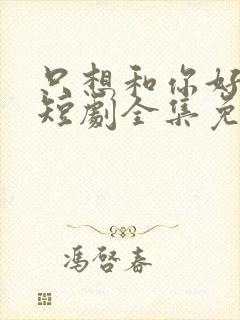 只想和你好
短剧全集免
冯启春